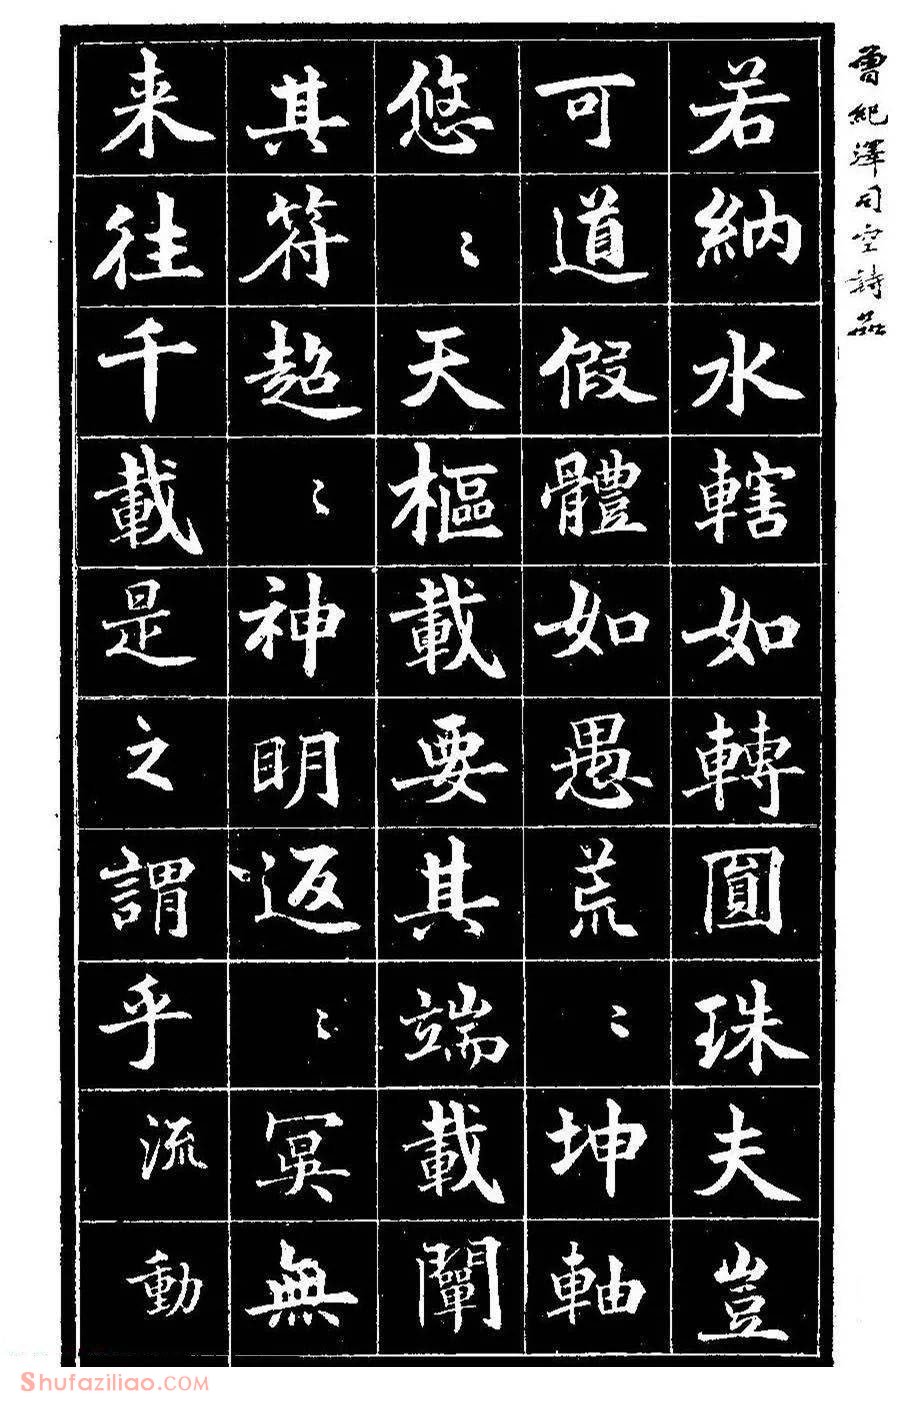 曾紀澤司空詩品
若納水轄如轉圓珠夫豈
可道假體如愚荒〻坤軸
悠〻天樞載要其端載闡
其符超〻神明返〻冥無
来往千載是之謂乎流動
Shufaziliao.COM